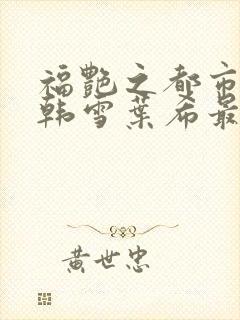 福艷之都市
韩雪葉希最
黄世忠